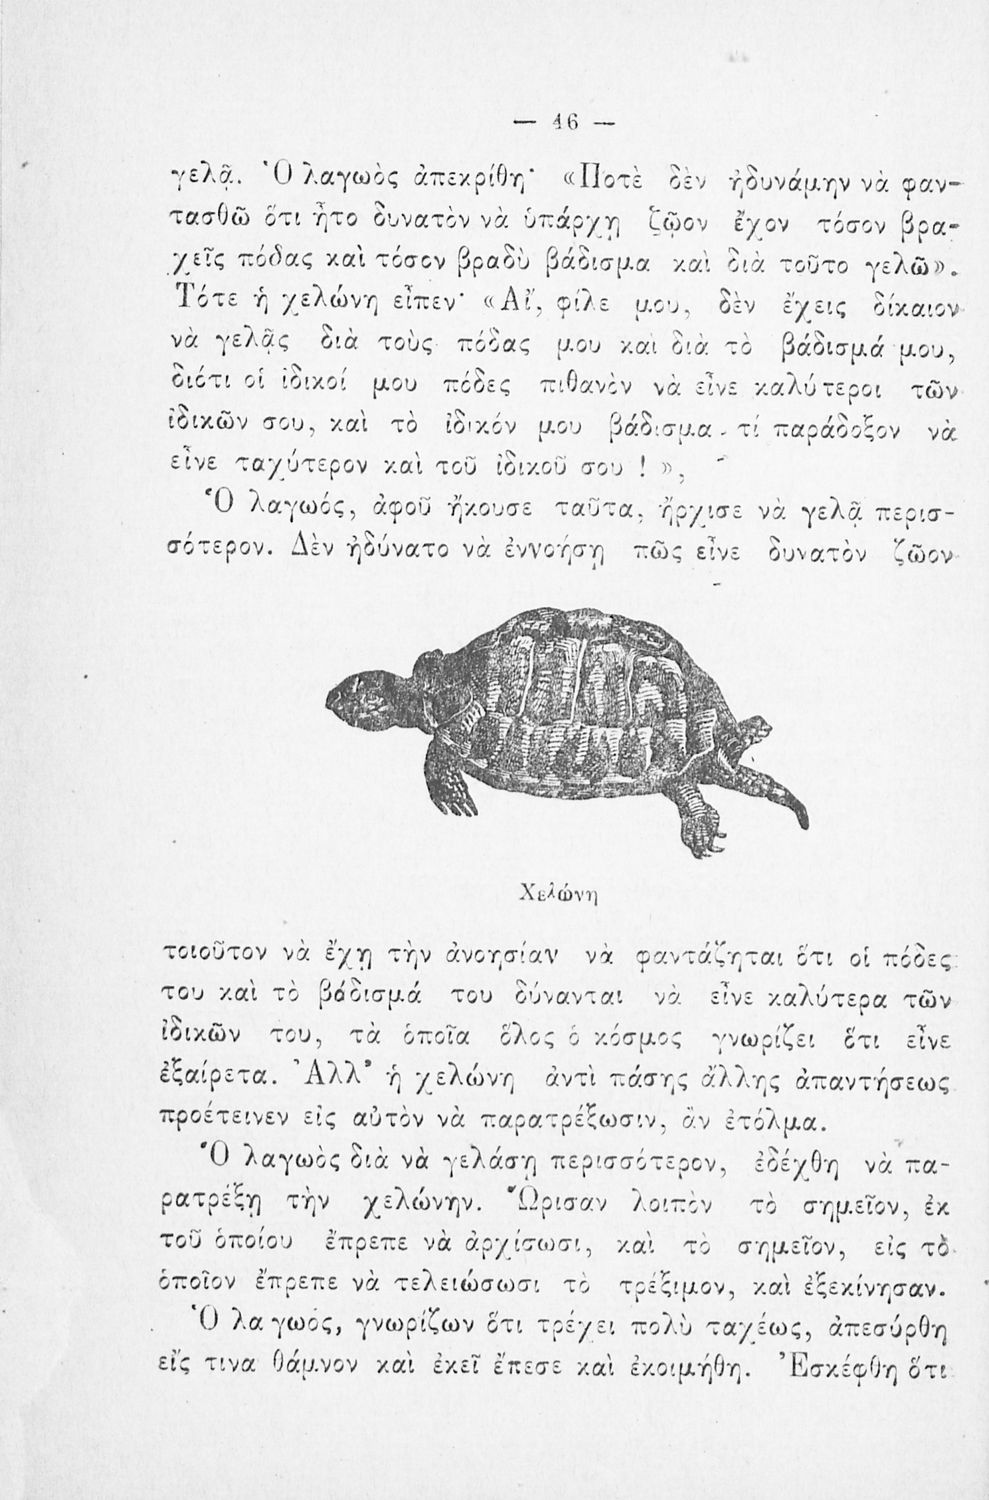 — 46 —
γελᾷ. Ὁ λαγωὸς ἀπεκρίθη· «Ποτὲ δὲν ἠδυνάμην νὰ φαν-
τασθῶ ὅτι ἦτο δυνατὸν νὰ ὑπάρχῃ ζῷον ἔχον τόσον βρα-
χεῖς πόδας καὶ τόσον βραδὺ βάδισμα καὶ διὰ τοῦτο γελῶ».
Τότε ἡ χελώνη εἶπεν· «Αἴ, φίλε μου, δὲν ἔχεις δίκαιον
νὰ γελᾷς διὰ τοὺς πόδας μου καὶ διὰ τὸ βάδισμά μου,
διότι οἱ ἰδικοί μου πόδες πιθανὸν νὰ εἶνε καλύτεροι τῶν
ἰδικῶν σου, καὶ τὸ ἰδικόν μου βάδισμα - τί παράδοξον νὰ
εἶνε ταχύτερον καὶ τοῦ ἰδικοῦ σου ! »,
Ὁ λαγωός, ἀφοῦ ἤκουσε ταῦτα, ἤρχισε νὰ γελᾷ περισ-
σότερον. Δὲν ἠδύνατο νὰ ἐννοήσῃ πῶς εἶνε δυνατὸν ζῶον
Χελώνη
τοιοῦτον νὰ ἔχῃ τὴν ἀνοησίαν νὰ φαντάζηται ὅτι οἱ πόδες
του καὶ τὸ βάδισμά του δύνανται νὰ εἶνε καλύτερα τῶν
ἰδικῶν του, τὰ ὁποῖα ὅλος ὁ κόσμος γνωρίζει ὅτι εἶνε
ἐξαίρετα. Ἀλλ' ἡ χελώνη ἀντὶ πάσης ἄλλης ἀπαντήσεως
προέτεινεν εἰς αὐτὸν νὰ παρατρέξωσιν, ἂν ἐτόλμα.
Ὁ λαγωὸς διὰ νὰ γελάσῃ περισσότερον, ἐδέχθη νὰ πα-
ρατρέξῃ τὴν χελώνην. Ὥρισαν λοιπὸν τὸ σημεῖον, ἐκ
τοῦ ὁποίου ἔπρεπε νὰ ἀρχίσωσι, καὶ τὸ σημεῖον, εἰς τὸ
ὁποῖον ἔπρεπε νὰ τελειώσωσι τὸ τρέξιμον, καὶ ἐξεκίνησαν.
Ὁ λαγωός, γνωρίζων ὅτι τρέχει πολὺ ταχέως, ἀπεσύρθη
εἴς τινα θάμνον καὶ ἐκεῖ ἔπεσε καὶ ἐκοιμήθη. Ἐσκέφθη ὅτι